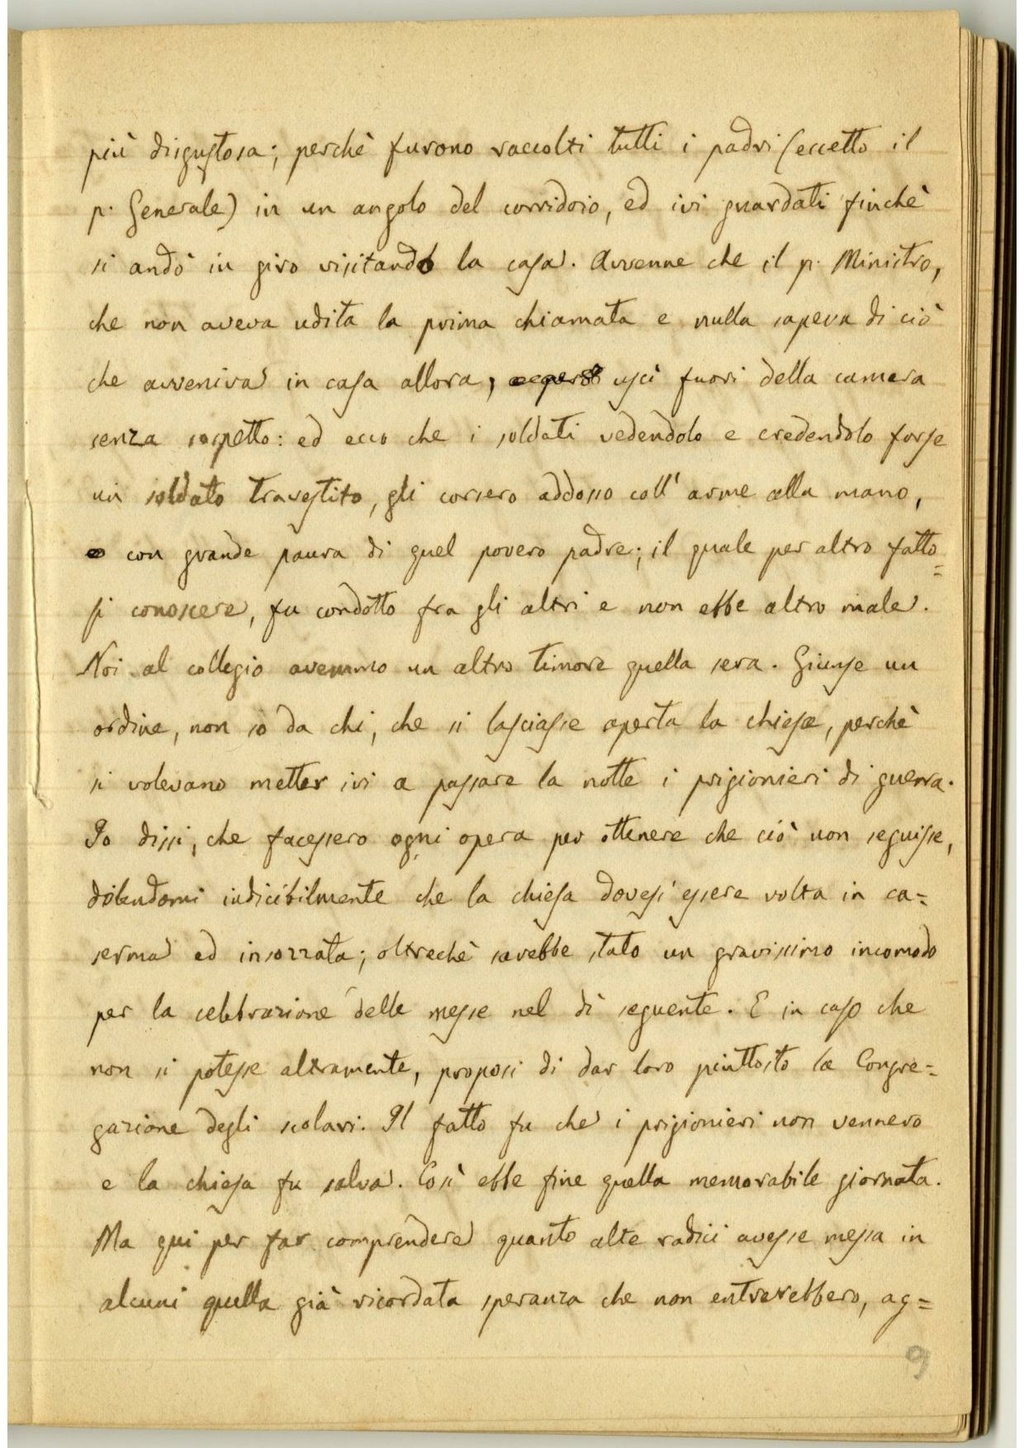 più disgustosa; perchè furono raccolti tutti i padri (eccetto il
p. Generale) in un angolo del corridoio, ed ivi guardati finchè
si andò in giro visitando la casa. Avvenne che il p. Ministro,
che non aveva udita la prima chiamata e nulla sapeva di ciò
che avveniva in casa allora, uscì fuori della camera
senza sospetto: ed ecco che i soldati vedendolo e credendolo forse
un soldato travestito, gli corsero addosso coll' arme alla mano,
con grande paura di quel povero padre; il quale per altro fatto=
si conoscere, fu condotto fra gli altri e non ebbe altro male.
Noi al collegio avemmo un altro timore quella sera. Giunse un
ordine, non so da chi, che si lasciasse aperta la chiesa, perchè
si volevano metter ivi a passare la notte i prigionieri di guerra.
Io dissi, che facessero ogni opera per ottenere che ciò non seguisse,
dolendomi indicibilmente che la chiesa doves' essere volta in ca=
serma ed insozzata; oltrechè sarebbe stato un gravissimo incomodo
per la celebrazione delle messe nel dì seguente. E in caso che
non si potesse altramente, proposi di dar loro piuttosto la Congre=
gazione degli scolari. Il fatto fu che i prigionieri non vennero
e la chiesa fu salva. Così ebbe fine quella memorabile giornata.
Ma qui per far comprendere quanto alte radici avesse messa in
alcuni quella già ricordata speranza che non entrerebbero, ag=
9